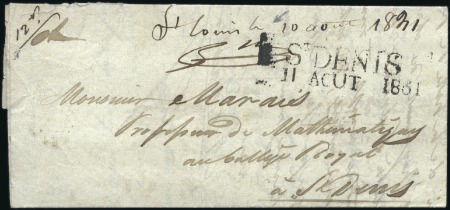 St Louis le 10 aout 1831
ST DENIS
11 AOUT 1831
Monsieur Marais
Professeur de Mathématiques
au Collège Royal
à St Denis